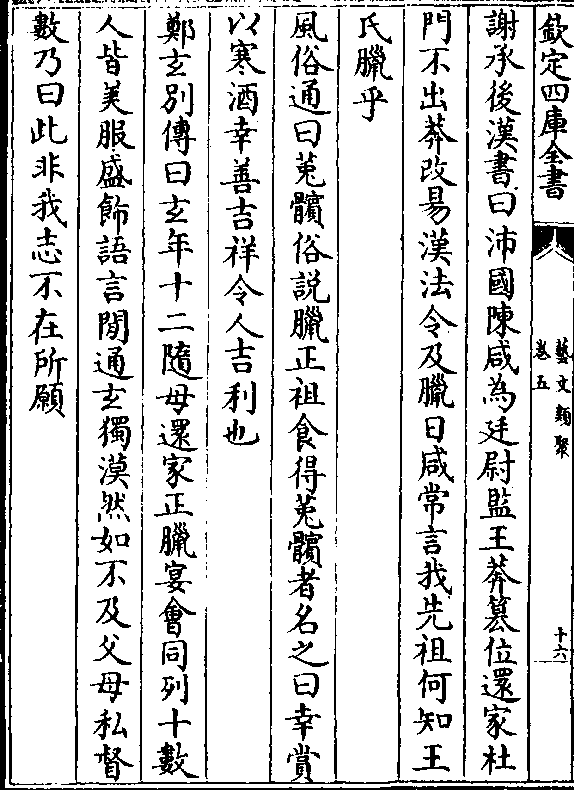 欽定四庫全書
藝文類聚
卷五
十六
謝承後漢書曰沛國陳咸為廷尉監王莽篡位還家杜
門不出莽改易漢法令及臘日咸常言我先祖何知王
氏臘乎
風俗通曰菟髕俗説臘正祖食得菟髕者名之曰幸賞
以寒酒幸善吉祥令人吉利也
鄭玄別傳曰玄年十二隨母還家正臘宴會同列十數
人皆美服盛飾語言閒通玄獨漠然如不及父母私督
數乃曰此非我志不在所願